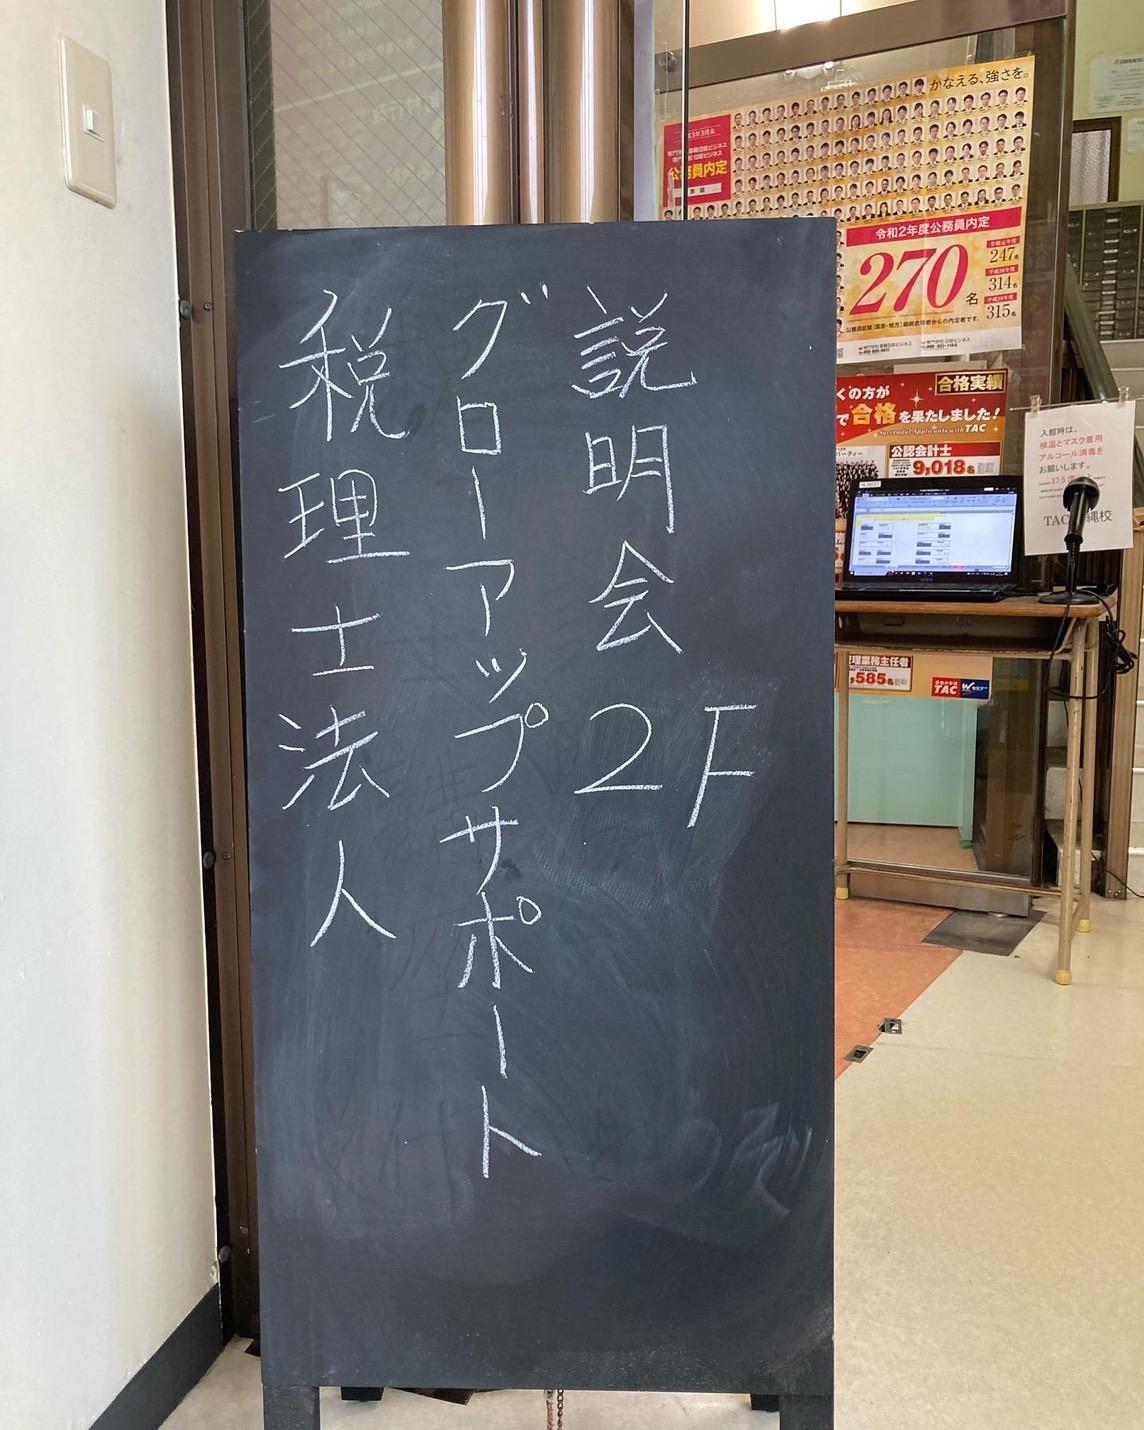 説明会 2F
グローアップサポート
税理士法人
かなえる、強さを。
公務員内定
令和2年度公務員内定
270名
247名
314名
315名
くの方が
で合格を果たしました！
合格実績
Successful Applicants with TAC
公認会計士
9,018名
入館時は、
検温とマスク着用
アルコール消毒を
お願いします。
585名
TAC